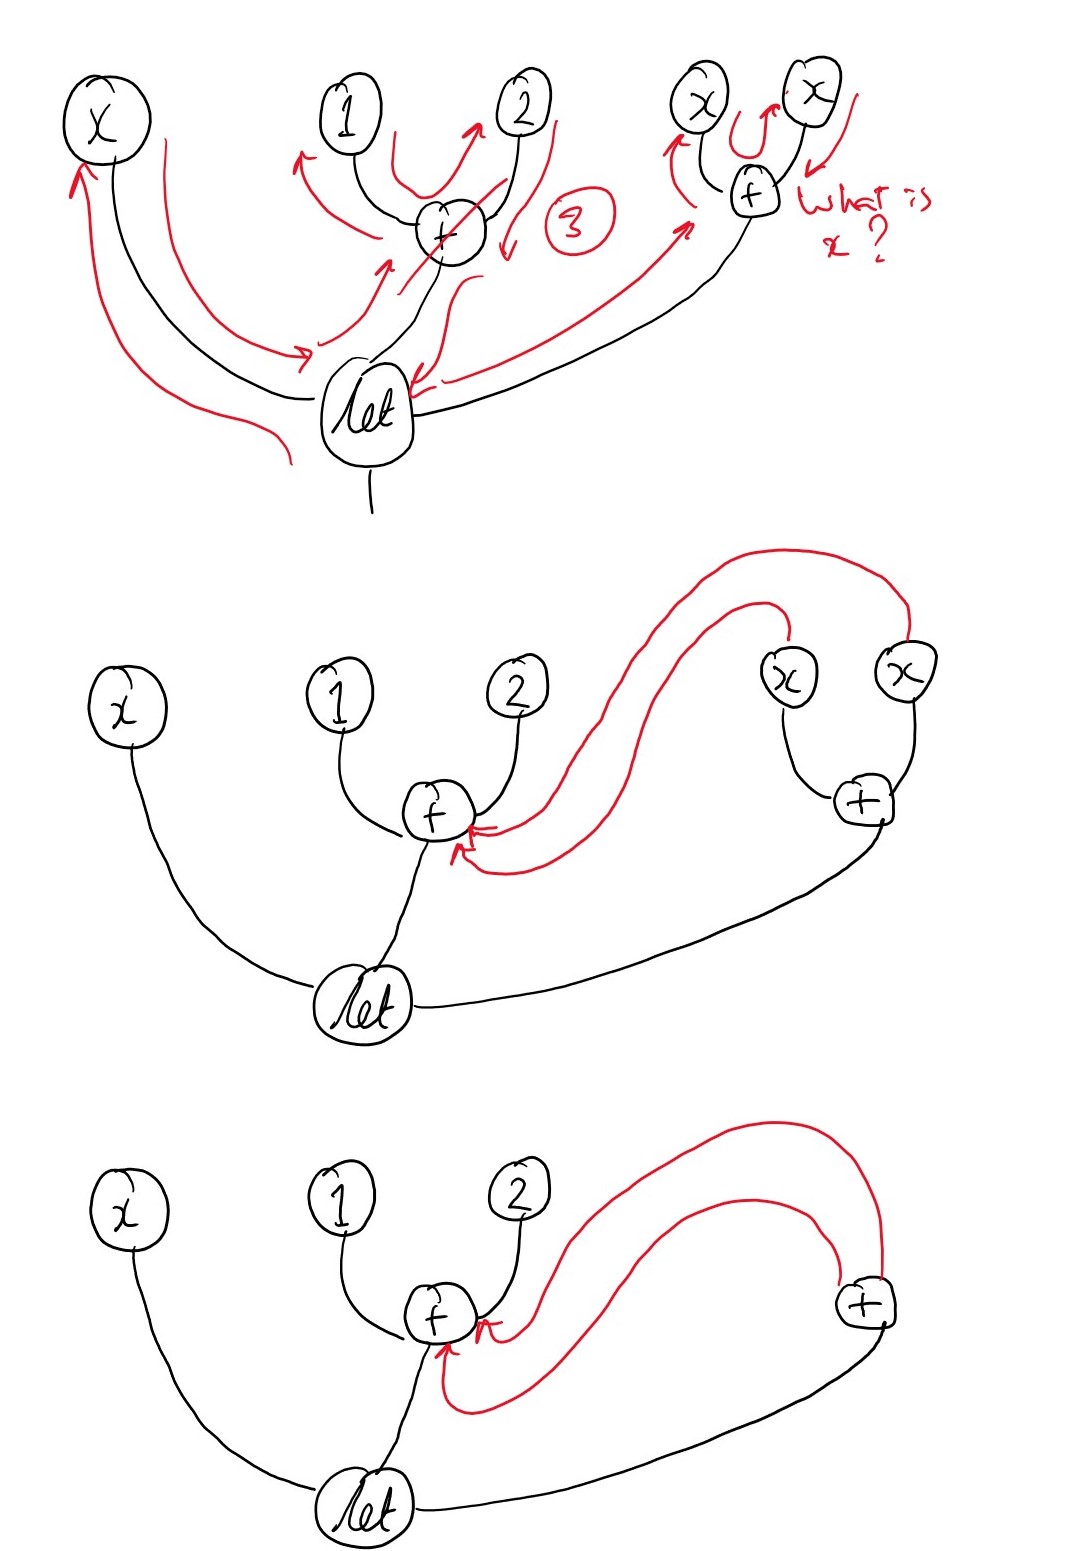 x 1 2 x x
+ 3 + What is
x ?
let
x 1 2 x x
+ +
let
x 1 2
+ +
let